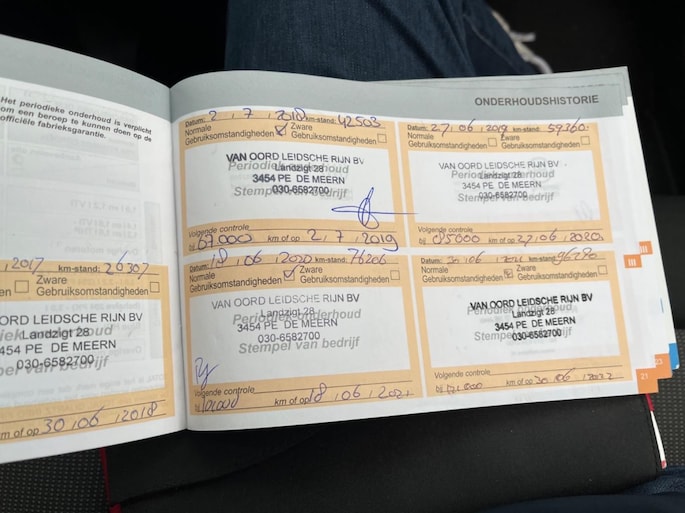 Het periodieke onderhoud is verplicht
om een beroep te kunnen doen op de
officiële fabrieksgarantie.
2017 km-stand: 26307
Zware
Gebruiksomstandigheden
ORD LEIDSCHE RIJN BV
Landzigt 28
3454 PE DE MEERN
030-6582700
Stempel van bedrijf
km of op 30 06 2018
ONDERHOUDSHISTORIE
Datum: 2 7 2018 km-stand: 42503
Normale Zware
Gebruiksomstandigheden Gebruiksomstandigheden
VAN OORD LEIDSCHE RIJN BV
Periodiek onderhoud
Landzigt 28
3454 PE DE MEERN
030-6582700
Stempel van bedrijf
Volgende controle
bij 67000 km of op 2 7 2019
Datum: 27 06 2019 km-stand: 59260
Normale Zware
Gebruiksomstandigheden Gebruiksomstandigheden
VAN OORD LEIDSCHE RIJN BV
Periodiek onderhoud
Landzigt 28
3454 PE DE MEERN
030-6582700
Stempel van bedrijf
Volgende controle
bij 85000 km of op 27 06 2020
18 06 2020 km-stand: 76206
Normale Zware
Gebruiksomstandigheden Gebruiksomstandigheden
VAN OORD LEIDSCHE RIJN BV
Periodiek onderhoud
Landzigt 28
3454 PE DE MEERN
030-6582700
Stempel van bedrijf
Volgende controle
bij km of op 18 06 2021
Datum: 30 06 2021 km-stand: 96290
Normale Zware
Gebruiksomstandigheden Gebruiksomstandigheden
VAN OORD LEIDSCHE RIJN BV
Periodiek onderhoud
Landzigt 28
3454 PE DE MEERN
030-6582700
Stempel van bedrijf
Volgende controle
bij km of op 30 06 2022
III
III
23
21